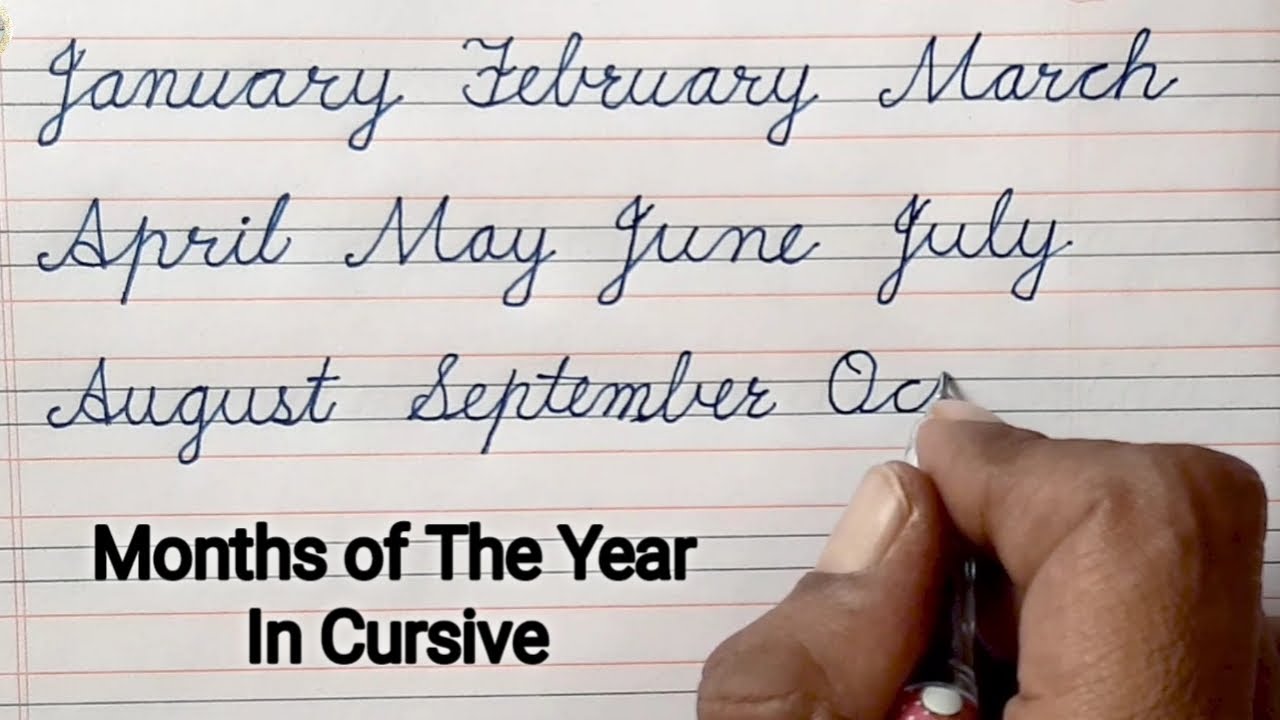 January February March
April May June July
August September Oc
Months of The Year
In Cursive